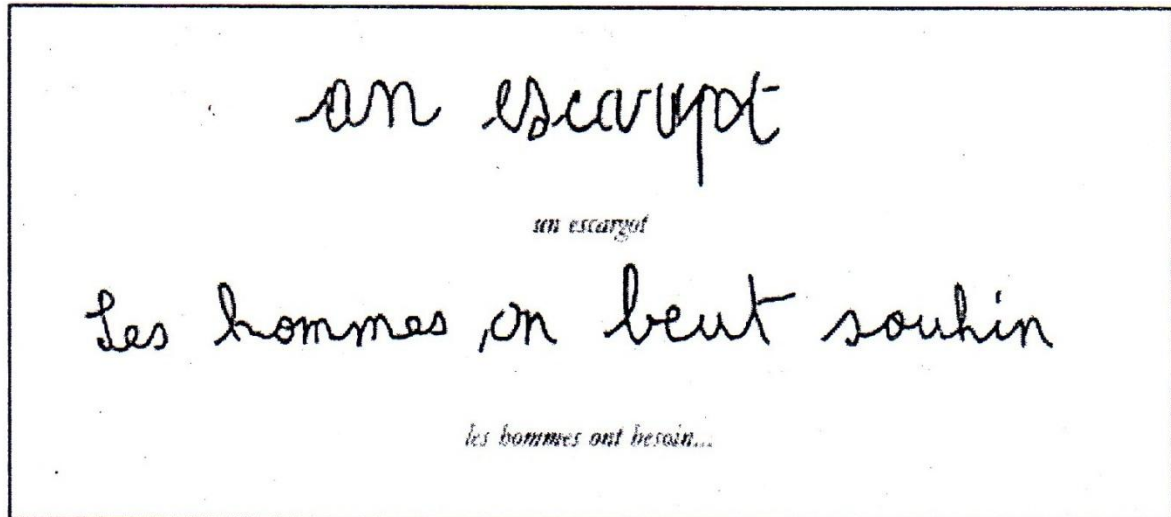 an escarypt
un escargot
Les hommes on beut souhin
les hommes ont besoin...